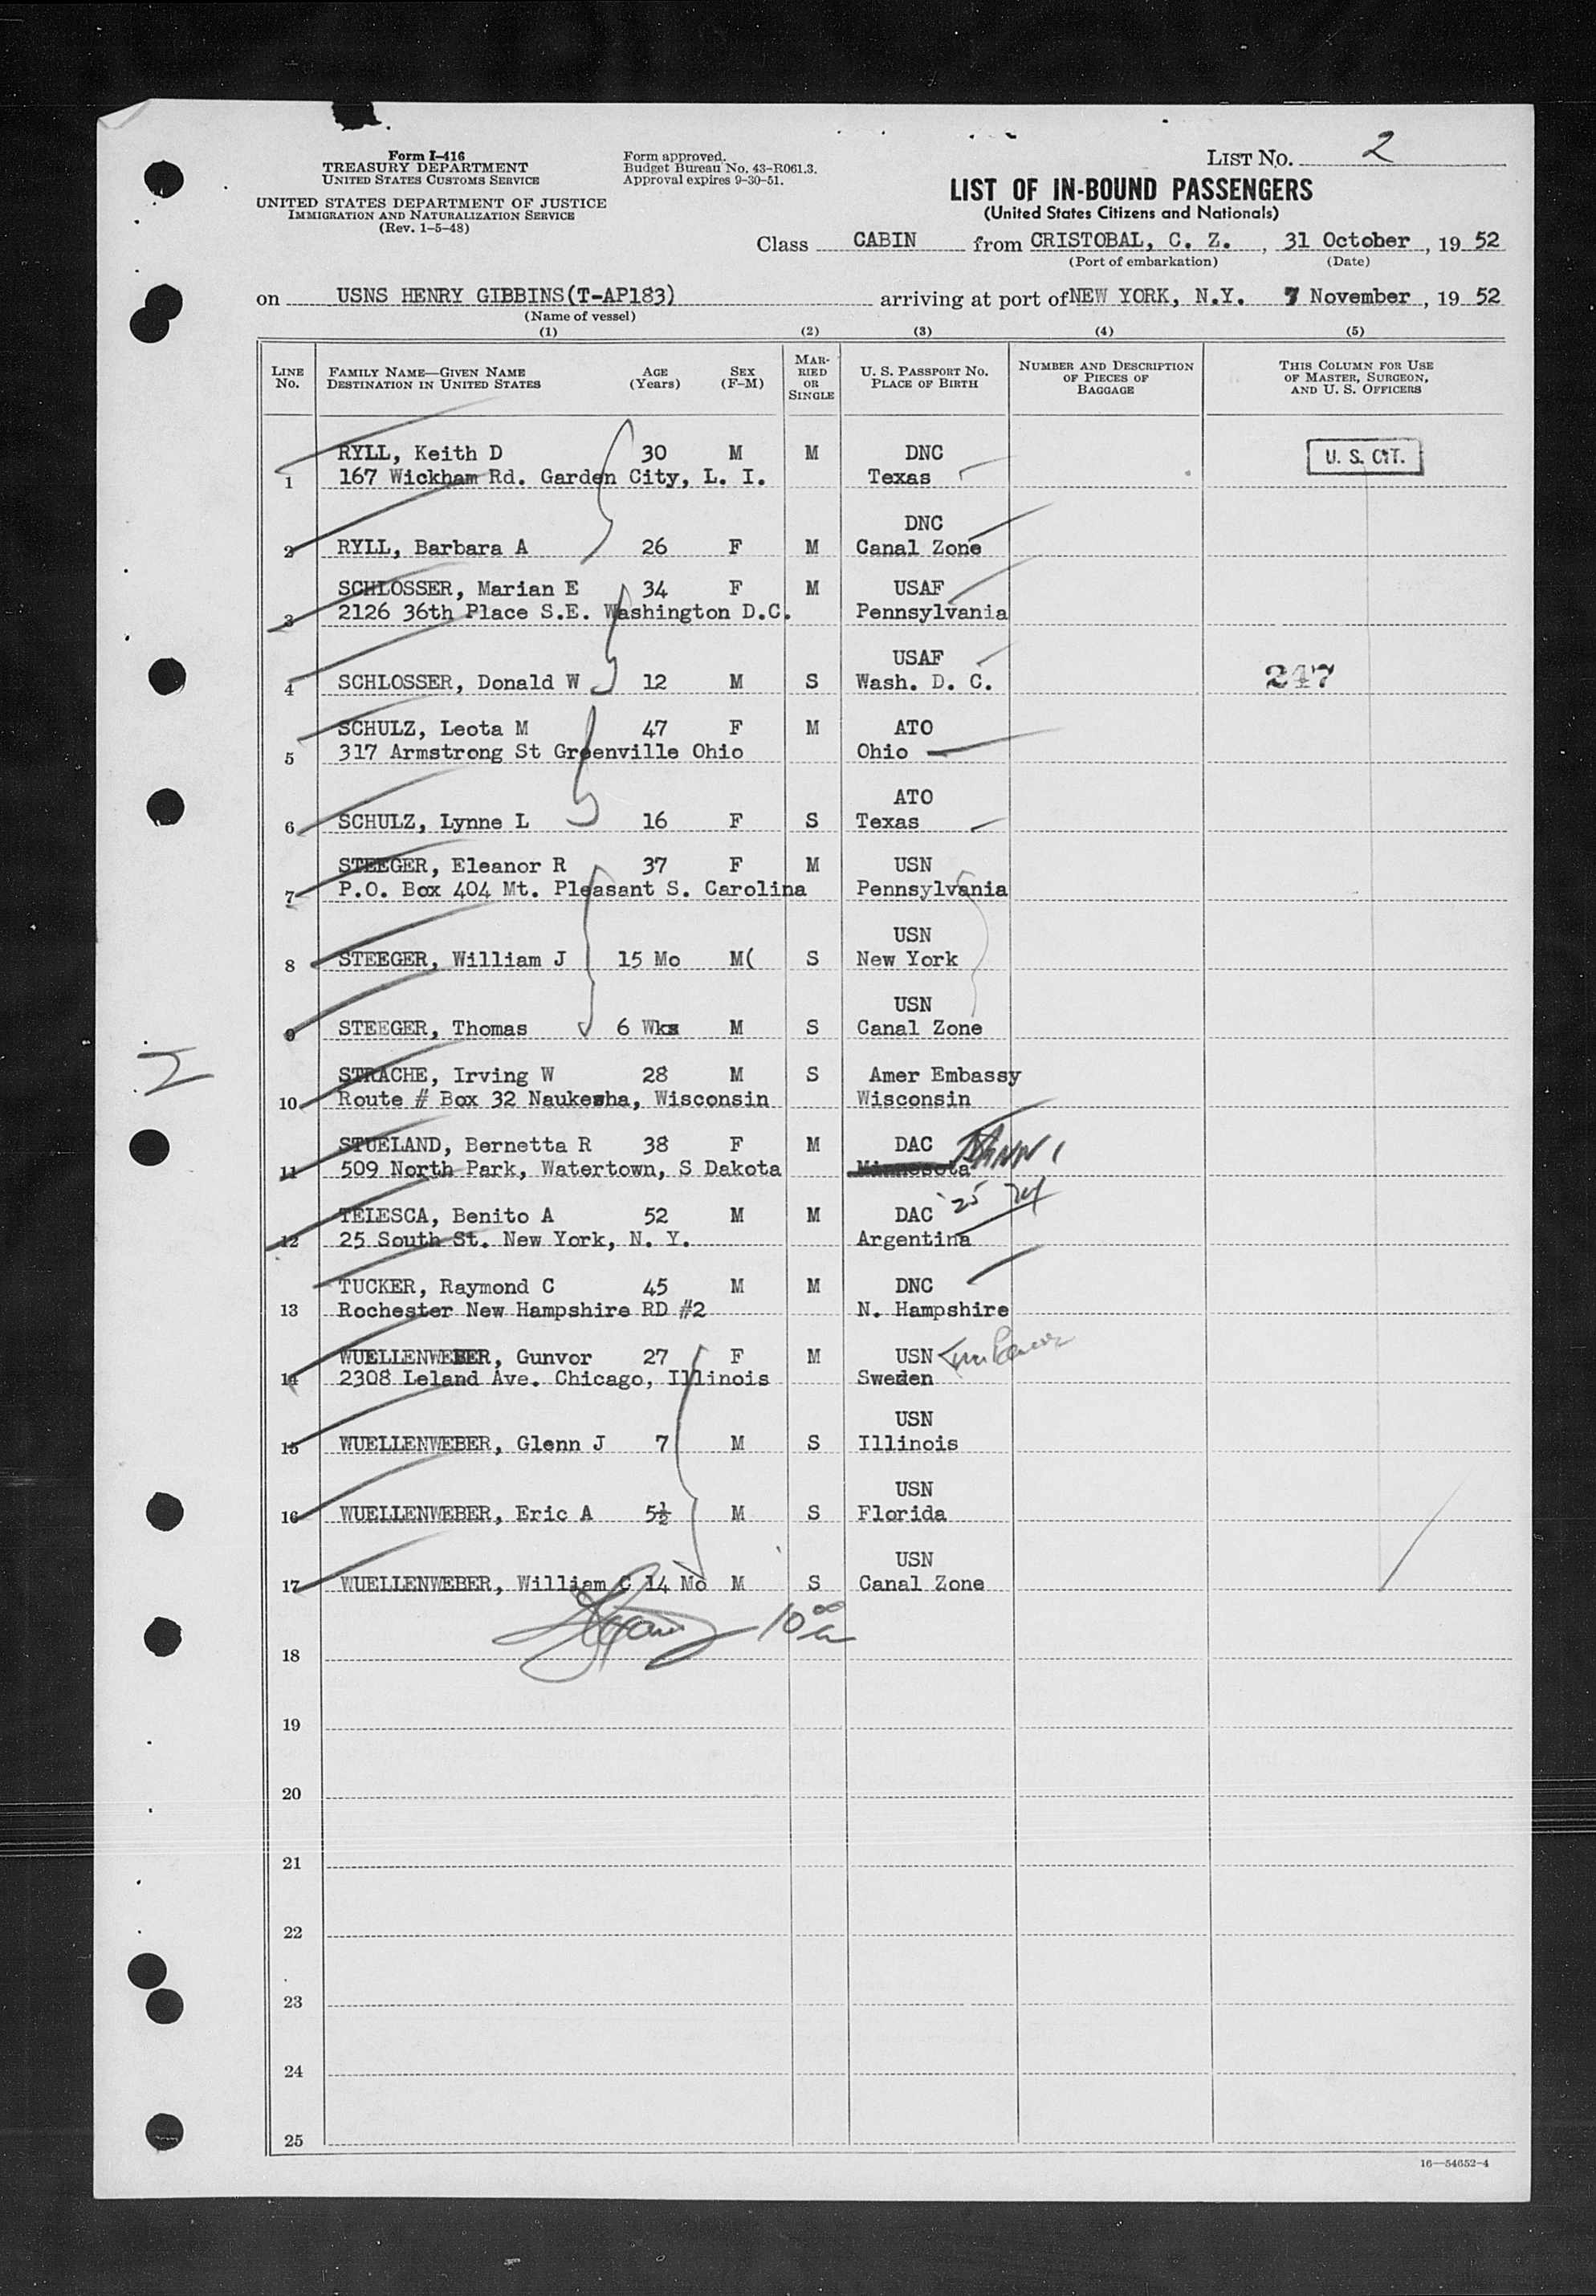 Form I-416
TREASURY DEPARTMENT
UNITED STATES CUSTOMS SERVICE
UNITED STATES DEPARTMENT OF JUSTICE
IMMIGRATION AND NATURALIZATION SERVICE
(Rev. 1-5-48)
Form approved.
Budget Bureau No. 43-R061.3.
Approval expires 9-30-51.
LIST NO. 2
LIST OF IN-BOUND PASSENGERS
(United States Citizens and Nationals)
Class CABIN from CRISTOBAL, C. Z., 31 October, 19 52
(Port of embarkation) (Date)
on USNS HENRY GIBBINS(T-AP183) arriving at port of NEW YORK, N.Y. 7 November, 19 52
(Name of vessel)
(1) (2) (3) (4) (5)
LINE No. FAMILY NAME—GIVEN NAME DESTINATION IN UNITED STATES AGE (Years) SEX (F-M) MARRIED OR SINGLE U. S. PASSPORT NO. PLACE OF BIRTH NUMBER AND DESCRIPTION OF PIECES OF BAGGAGE THIS COLUMN FOR USE OF MASTER, SURGEON, AND U. S. OFFICERS
RYLL, Keith D 30 M M DNC U. S. CIT.
1 167 Wickham Rd. Garden City, L. I. Texas
DNC
2 RYLL, Barbara A 26 F M Canal Zone
SCHLOSSER, Marian E 34 F M USAF
3 2126 36th Place S.E. Washington D.C. Pennsylvania
USAF
4 SCHLOSSER, Donald W 12 M S Wash. D. C. 247
SCHULZ, Leota M 47 F M ATO
5 317 Armstrong St Greenville Ohio Ohio
ATO
6 SCHULZ, Lynne L 16 F S Texas
STEEGER, Eleanor R 37 F M USN
7 P.O. Box 404 Mt. Pleasant S. Carolina Pennsylvania
USN
8 STEEGER, William J 15 Mo M( S New York
USN
9 STEEGER, Thomas 6 Wks M S Canal Zone
STRACHE, Irving W 28 M S Amer Embassy
10 Route # Box 32 Naukesha, Wisconsin Wisconsin
STUELAND, Bernetta R 38 F M DAC
11 509 North Park, Watertown, S Dakota Minnesota
TELESCA, Benito A 52 M M DAC
12 25 South St. New York, N. Y. Argentina
TUCKER, Raymond C 45 M M DNC
13 Rochester New Hampshire RD #2 N. Hampshire
WUELLENWEBER, Gunvor 27 F M USN
14 2308 Leland Ave. Chicago, Illinois Sweden
USN
15 WUELLENWEBER, Glenn J 7 M S Illinois
USN
16 WUELLENWEBER, Eric A 5½ M S Florida
USN
17 WUELLENWEBER, William C 14 Mo M S Canal Zone
18
19
20
21
22
23
24
25
16—54652-4